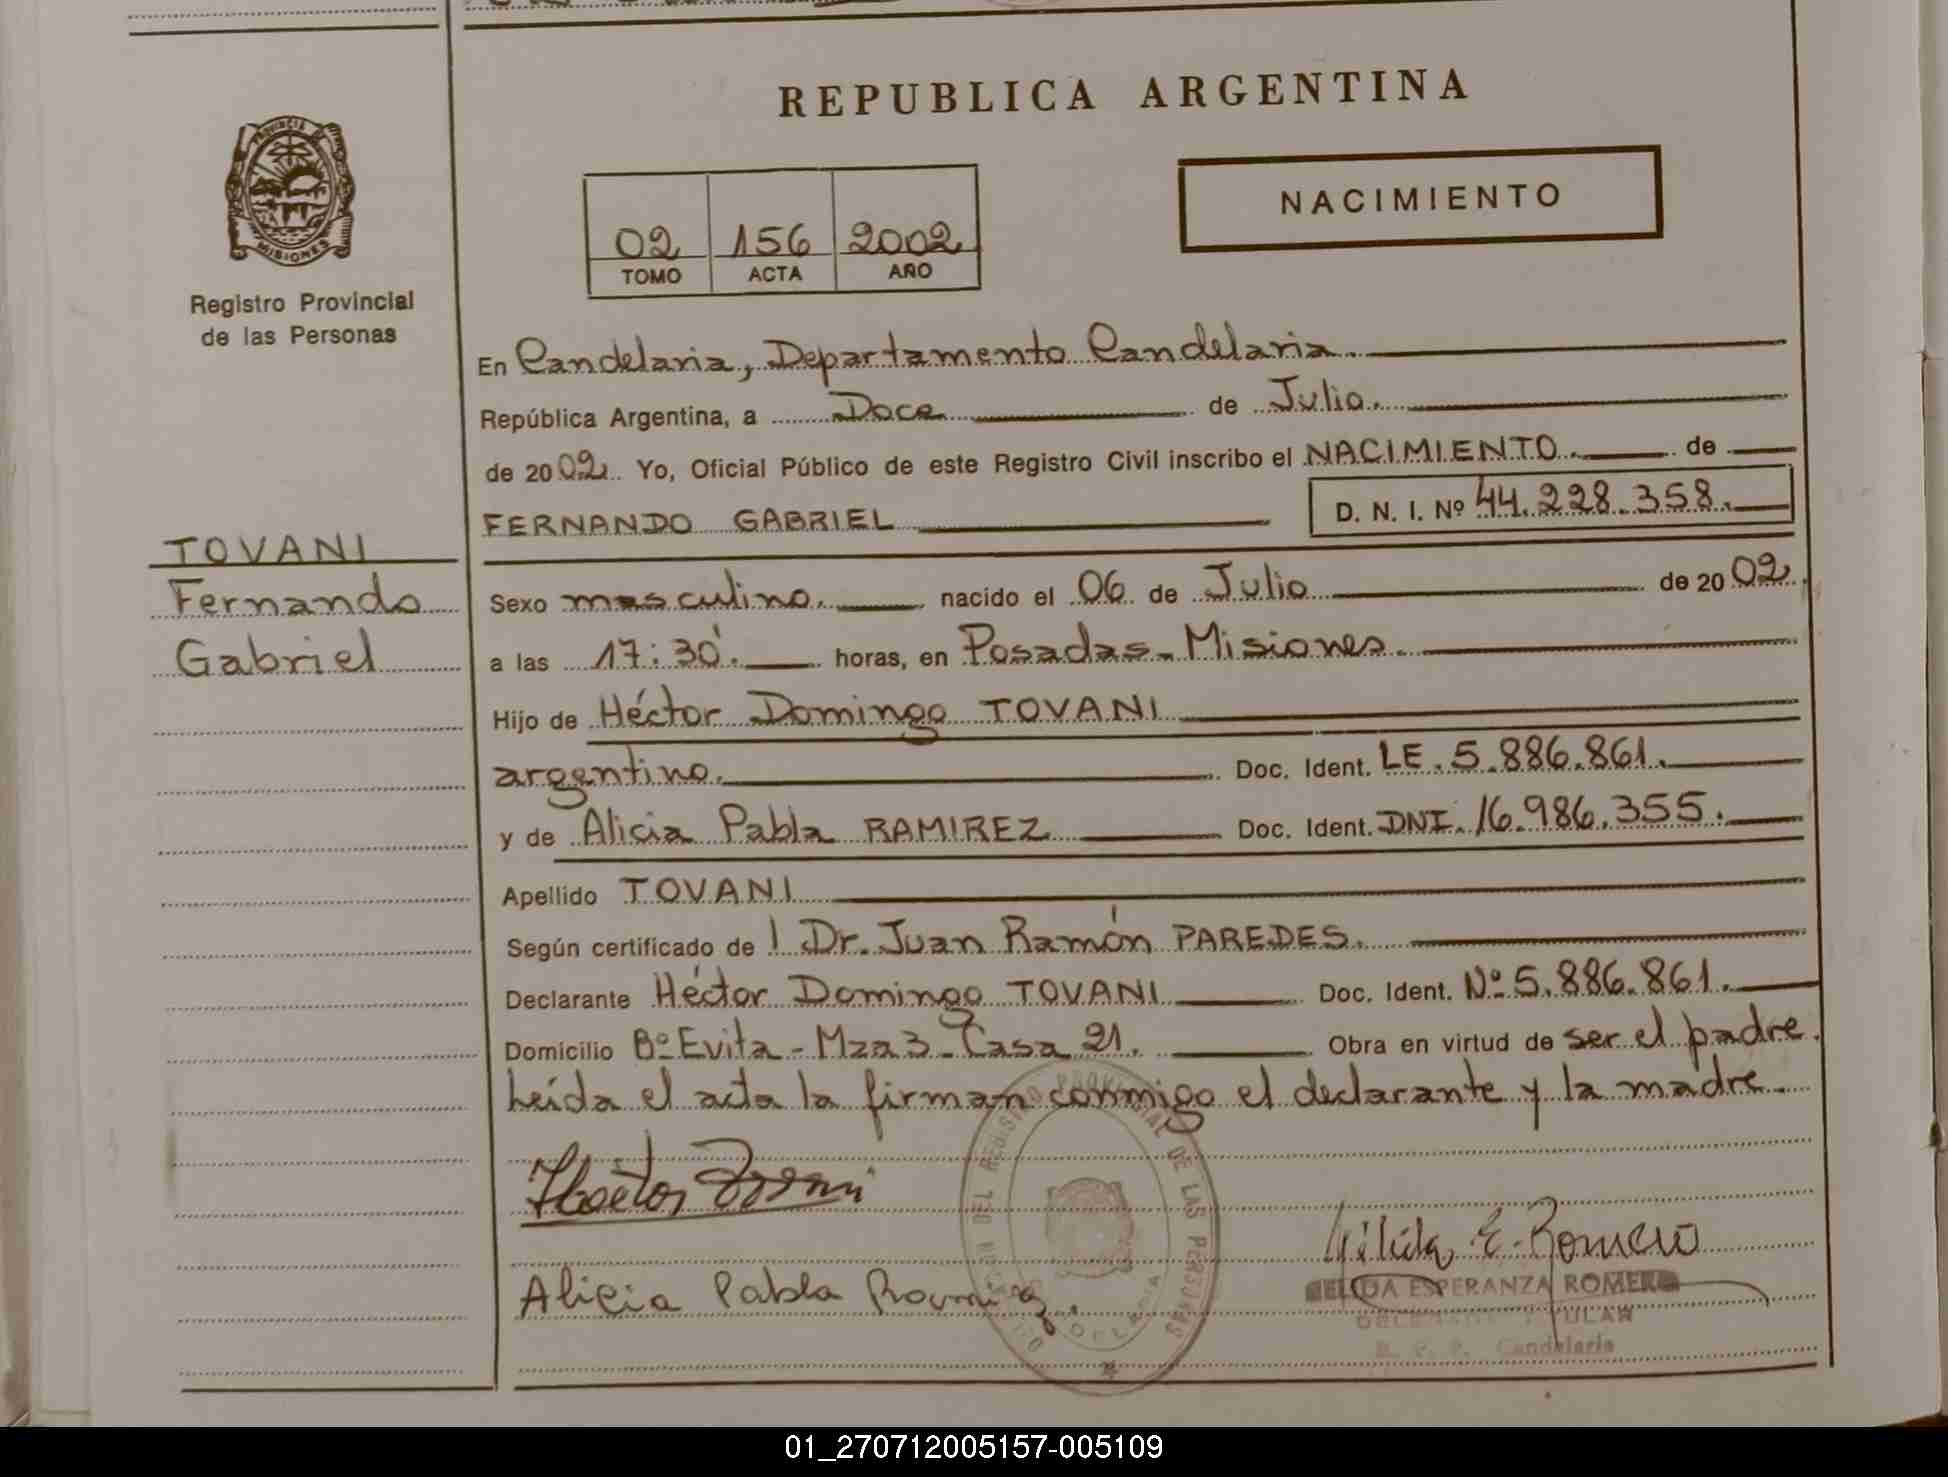 REPUBLICA ARGENTINA
PROVINCIA DE
MISIONES
Registro Provincial
de las Personas
NACIMIENTO
02 156 2002
TOMO ACTA AÑO
En Candelaria, Departamento Candelaria.
República Argentina, a Doce de Julio.
de 2002. Yo, Oficial Público de este Registro Civil inscribo el NACIMIENTO. de
FERNANDO GABRIEL D. N. I. Nº 44.228.358.
TOVANI
Fernando
Gabriel
Sexo masculino. nacido el 06 de Julio de 2002.
a las 17:30'. horas, en Posadas-Misiones.
Hijo de Héctor Domingo TOVANI
argentino. Doc. Ident. LE. 5.886.861.
y de Alicia Pabla RAMIREZ Doc. Ident. DNI. 16.986.355.
Apellido TOVANI
Según certificado de l Dr. Juan Ramón PAREDES.
Declarante Héctor Domingo TOVANI Doc. Ident. Nº 5.886.861.
Domicilio Bº Evita - Mza 3 - Casa 21. Obra en virtud de ser el padre.
Leída el acta la firman conmigo el declarante y la madre.
Hector Tovani
Alicia Pabla Ramirez.
DEL REGISTRO PROVINCIAL DE LAS PERSONAS
E. Romero
ESPERANZA ROMERO
R. P. P. Candelaria
01_270712005157-005109